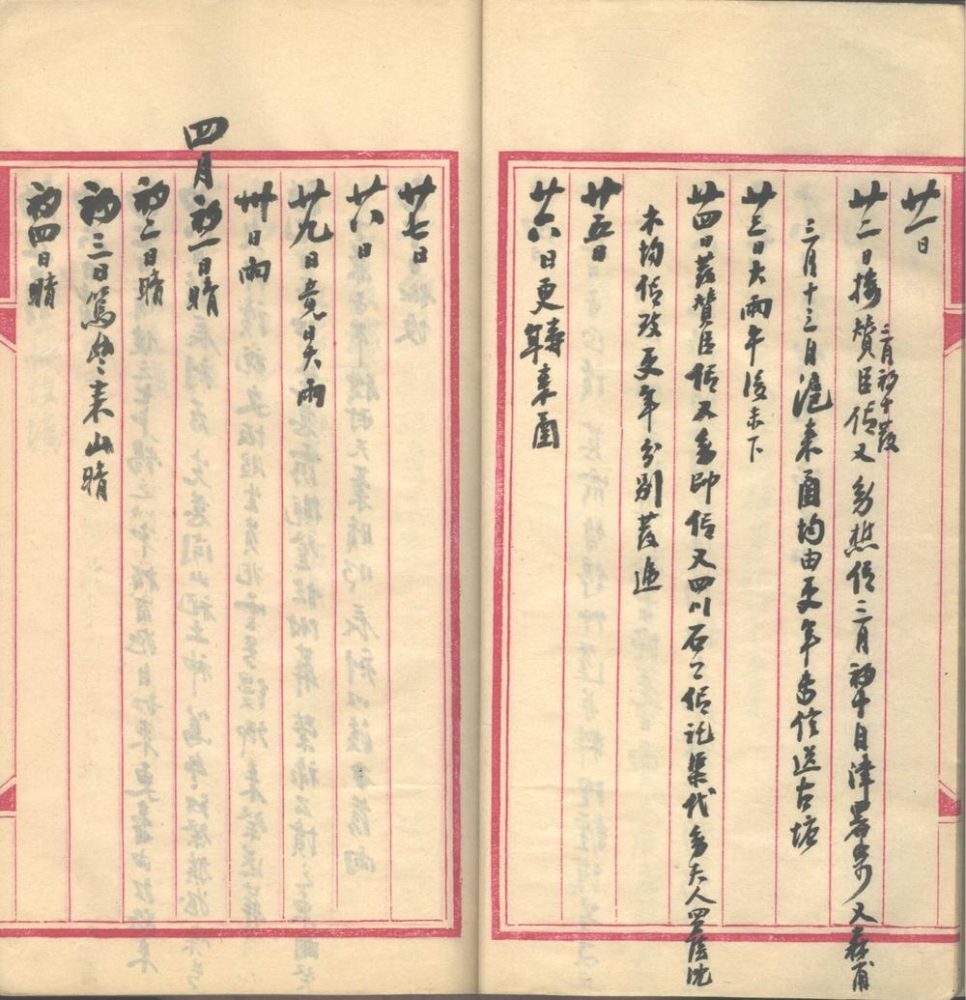 廿一日
廿二日接贊臣信又 信二月初十自津署 又 甫
二月初十發
三月十三自滬來函均由更年 信送古塘
廿三日大雨午後未下
廿四日 贊臣信又 印信又四川石 信託 代 夫人 沈
木均信 更年分别 遞
廿五日
廿六日更 來函
廿七日
廿八日
廿九日竟日大雨
卅日雨
四月初一日晴
初二日晴
初三日篤 來山晴
初四日晴